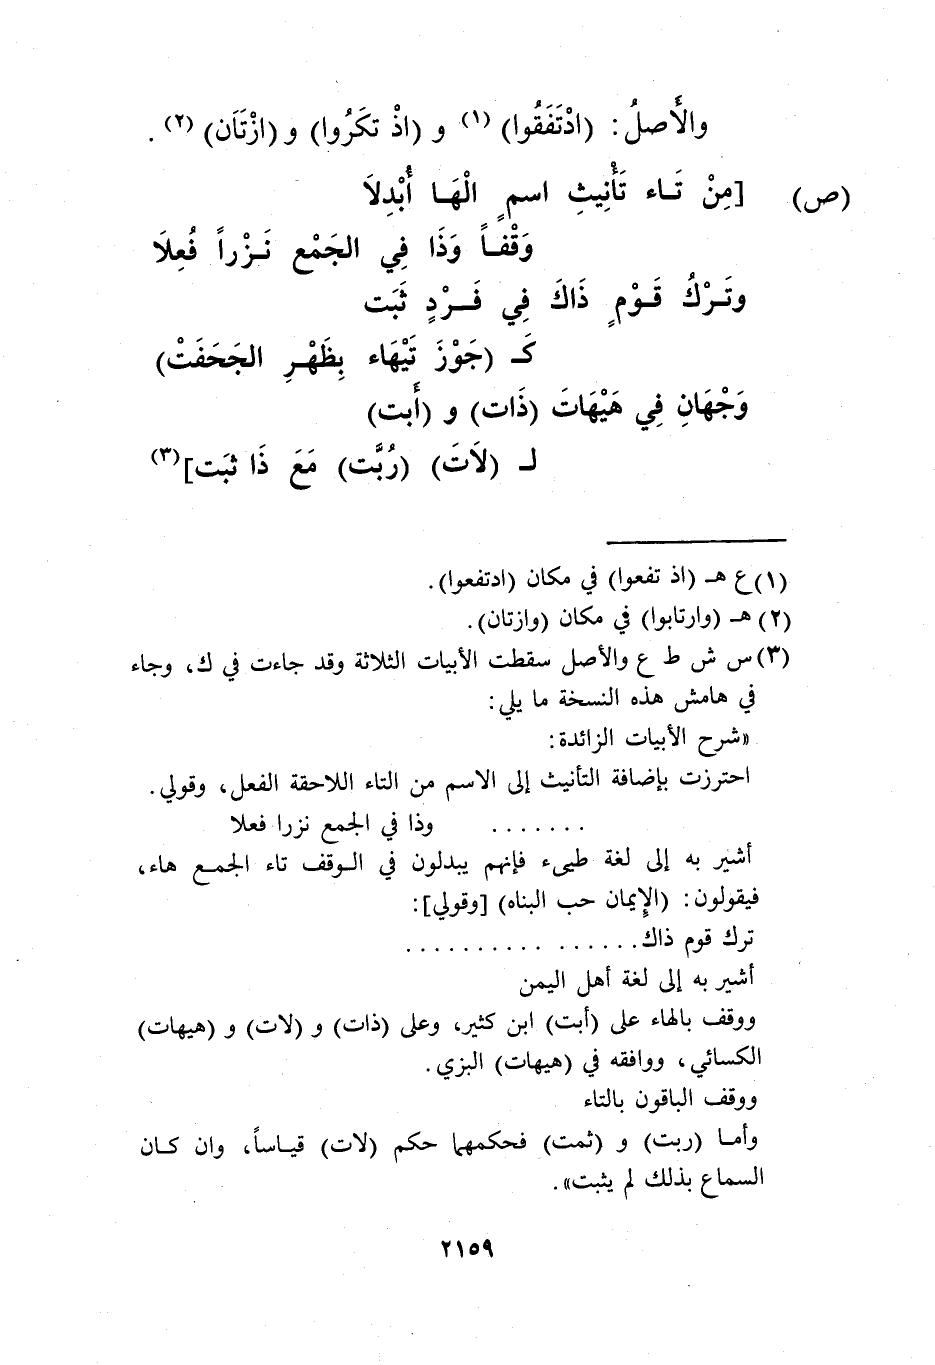 والأَصلُ: (ادْتَفَقُوا) (١) و (اذْ تكَرُوا) و (ازْتَاَن) (٢) .
(ص) [مِنْ تَـاء تَأْنِيثِ اسمٍ الْهَـا أُبْدِلاَ
وَقْفـاً وَذَا فِي الجَمْع نَـزْراً فُعِلاَ
وتَـرْكُ قَـوْمٍ ذَاكَ فِي فَـــرْدٍ ثَبَت
كَـ (جَوْزَ تَيْهَاء بِظَهْـرِ الجَحَفَتْ)
وَجْهَانِ فِي هَيْهَاتَ (ذَات) و (أَبت)
لـ (لاَتَ) (رُبَّت) مَعَ ذَا ثبَت](٣)
(١) ع هـ (اذ تفعوا) في مكان (ادتفعوا).
(٢) هـ (وارتابوا) في مكان (وازتان).
(٣) س ش ط ع والأصل سقطت الأبيات الثلاثة وقد جاءت في ك، وجاء
في هامش هذه النسخة ما يلي:
«شرح الأبيات الزائدة:
احترزت بإضافة التأنيث إلى الاسم من التاء اللاحقة الفعل، وقولي.
....... وذا في الجمع نزرا فعلا
أشير به إلى لغة طيىء فإنهم يبدلون في الـوقف تاء الجمـع هاء،
فيقولون: (الإيمان حب البناه) [وقولي]:
ترك قوم ذاك...... ..........
أشير به إلى لغة أهل اليمن
ووقف بالهاء على (أبت) ابن كثير، وعلى (ذات) و (لات) و (هيهات)
الكسائي، ووافقه في (هيهات) البزي.
ووقف الباقون بالتاء
وأمـا (ربت) و (ثمت) فحكمهما حكم (لات) قيـاساً، وان كـان
السماع بذلك لم يثبت».
٢١٥٩